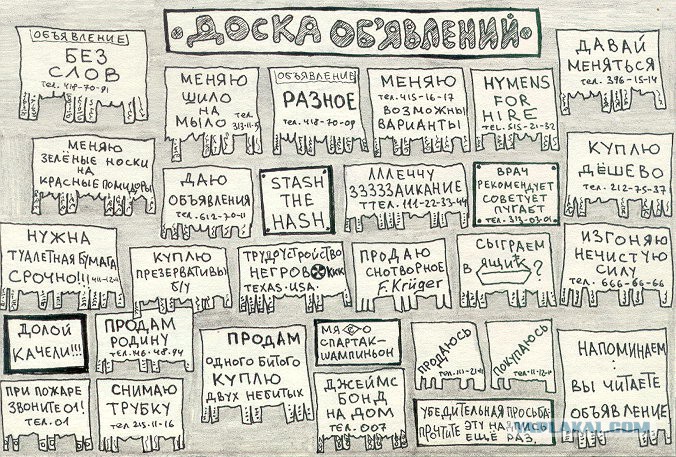 ДОСКА ОБ'ЯВЛЕНИЙ
ОБЪЯВЛЕНИЕ
БЕЗ
СЛОВ
МЕНЯЮ
ШИЛО
НА
МЫЛО тел.
ОБЪЯВЛЕНИЕ
РАЗНОЕ
тел. 418-70-09
МЕНЯЮ
тел. 415-16-17
ВОЗМОЖНЫ
ВАРИАНТЫ
HYMENS
FOR
HIRE
TEL. 515-21-32
ДАВАЙ
МЕНЯТЬСЯ
тел. 396-15-14
МЕНЯЮ
ЗЕЛЁНЫЕ НОСКИ
НА
КРАСНЫЕ ПОМИДОРЫ
ДАЮ
ОБЪЯВЛЕНИЯ
тел. 612-70-11
STASH
THE
HASH
ЛЛЛЕЧЧУ
ЗЗЗЗЗАИКАНИЕ
ТТЕЛ. 111-22-33-44
ВРАЧ
РЕКОМЕНДУЕТ
СОВЕТУЕТ
ПУГАЕТ
тел. 313-03-01
КУПЛЮ
ДЁШЕВО
тел. 212-75-37
НУЖНА
ТУАЛЕТНАЯ БУМАГА
СРОЧНО!!!
КУПЛЮ
ПРЕЗЕРВАТИВЫ
Б/У
ТРУДУСТРОЙСТВО
НЕГРОВ KKK
TEXAS. USA.
ПРОДАЮ
СНОТВОРНОЕ
F. Krüger
СЫГРАЕМ
В ЯЩИК?
ИЗГОНЯЮ
НЕЧИСТУЮ
СИЛУ
тел. 666-66-66
ДОЛОЙ
КАЧЕЛИ!!!
ПРОДАМ
РОДИНУ
тел. 46-48-94
ПРОДАМ
ОДНОГО БИТОГО
КУПЛЮ
ДВУХ НЕБИТЫХ
МЯСО
СПАРТАК-
ШАМПИНЬОН
ПРОДАЮСЬ
ПОКУПАЮСЬ
НАПОМИНАЕМ
:
ВЫ ЧИТАЕТЕ
ОБЪЯВЛЕНИЕ
ПРИ ПОЖАРЕ
ЗВОНИТЕ 01!
ТЕЛ. 01
СНИМАЮ
ТРУБКУ
тел 215-11-16
ДЖЕЙМС
БОНД
НА ДОМ
ТЕЛ. 007
УБЕДИТЕЛЬНАЯ ПРОСЬБА:
ПРОЧТИТЕ ЭТУ НАДПИСЬ
ЕЩЁ РАЗ.
YAPLAKAL.COM